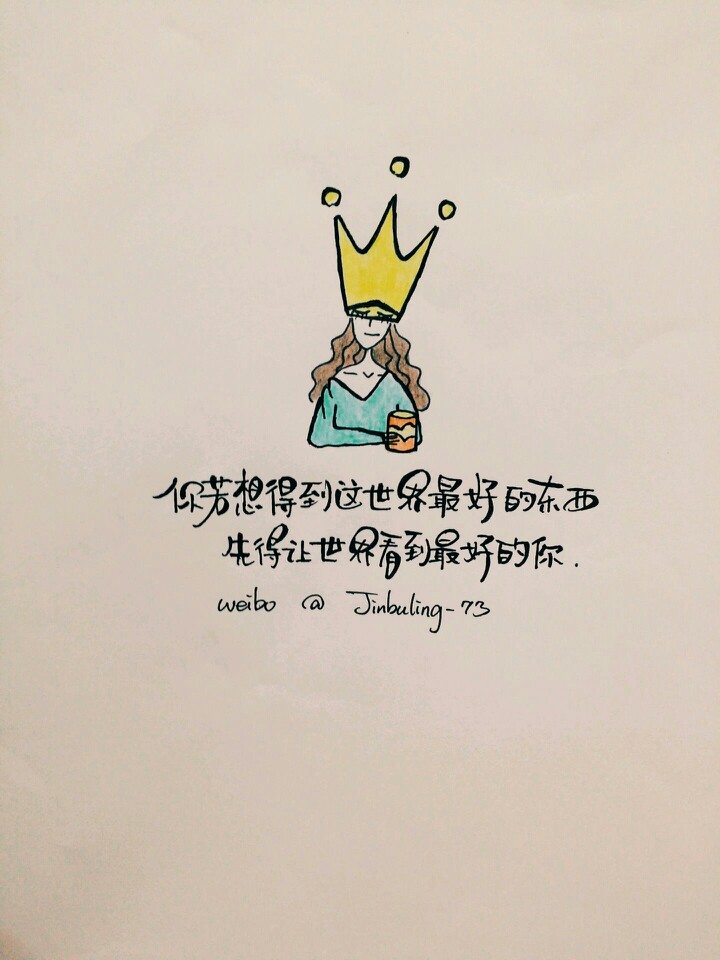 你若想得到这世界最好的东西
先得让世界看到最好的你.
weibo @ Jinbuling-73